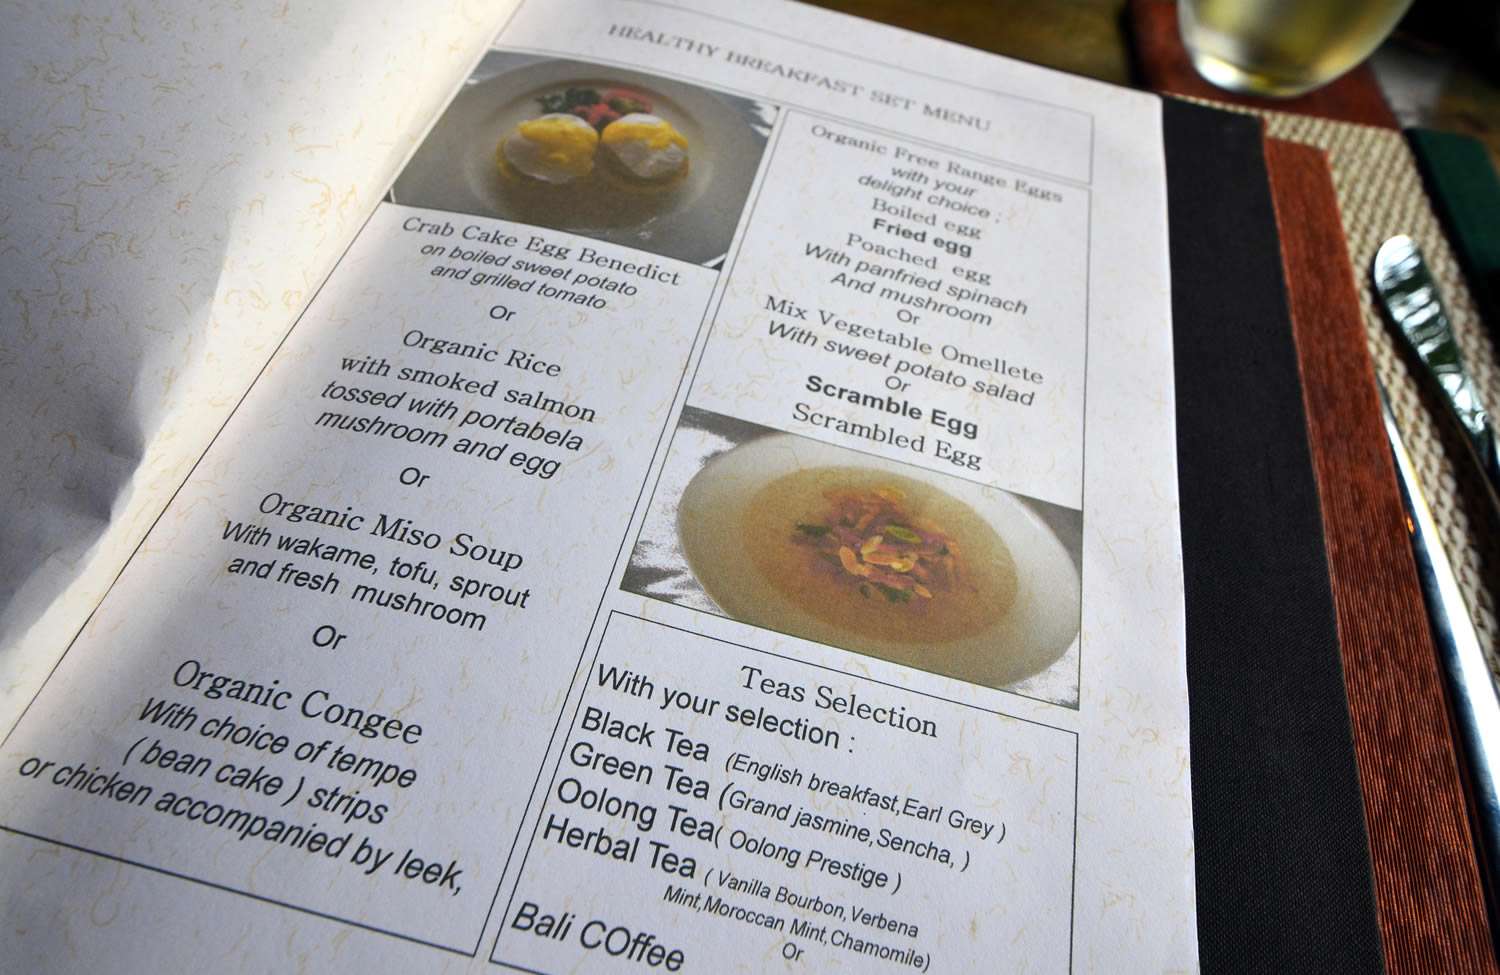 HEALTHY BREAKFAST SET MENU
Crab Cake Egg Benedict
on boiled sweet potato
and grilled tomato
Or
Organic Rice
with smoked salmon
tossed with portabela
mushroom and egg
Or
Organic Miso Soup
With wakame, tofu, sprout
and fresh mushroom
Or
Organic Congee
With choice of tempe
( bean cake ) strips
or chicken accompanied by leek,
Organic Free Range Eggs
with your
delight choice :
Boiled egg
Fried egg
Poached egg
With panfried spinach
And mushroom
Or
Mix Vegetable Omellete
With sweet potato salad
Or
Scramble Egg
Scrambled Egg
Teas Selection
With your selection :
Black Tea (English breakfast,Earl Grey )
Green Tea (Grand jasmine,Sencha, )
Oolong Tea( Oolong Prestige )
Herbal Tea ( Vanilla Bourbon, Verbena
Mint,Moroccan Mint,Chamomile)
Or
Bali COffee